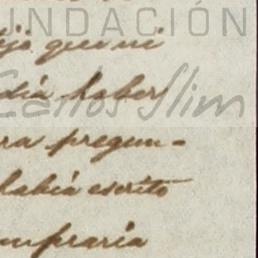 FUNDACIÓN
dijo que ni
día haber
Carlos Slim
ra pregun-
había escrito
mpraría